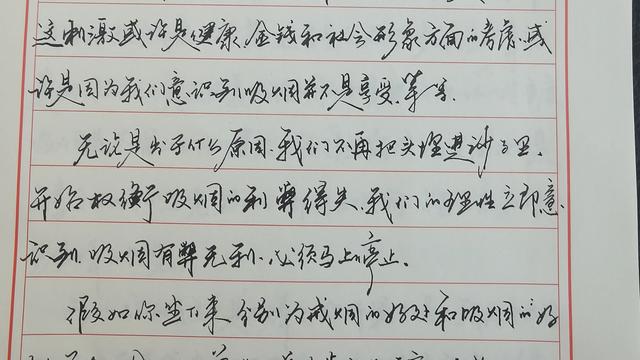 这刺激或许是健康、金钱和社会形象方面的考虑，或
许是因为我们意识到吸烟并不是享受，等等。
无论是出于什么原因，我们不再把头埋进沙子里，
开始权衡吸烟的利弊得失，我们的理性立即意
识到，吸烟有弊无利，必须马上停止。
假如你坐下来，分别为戒烟的好处和吸烟的好